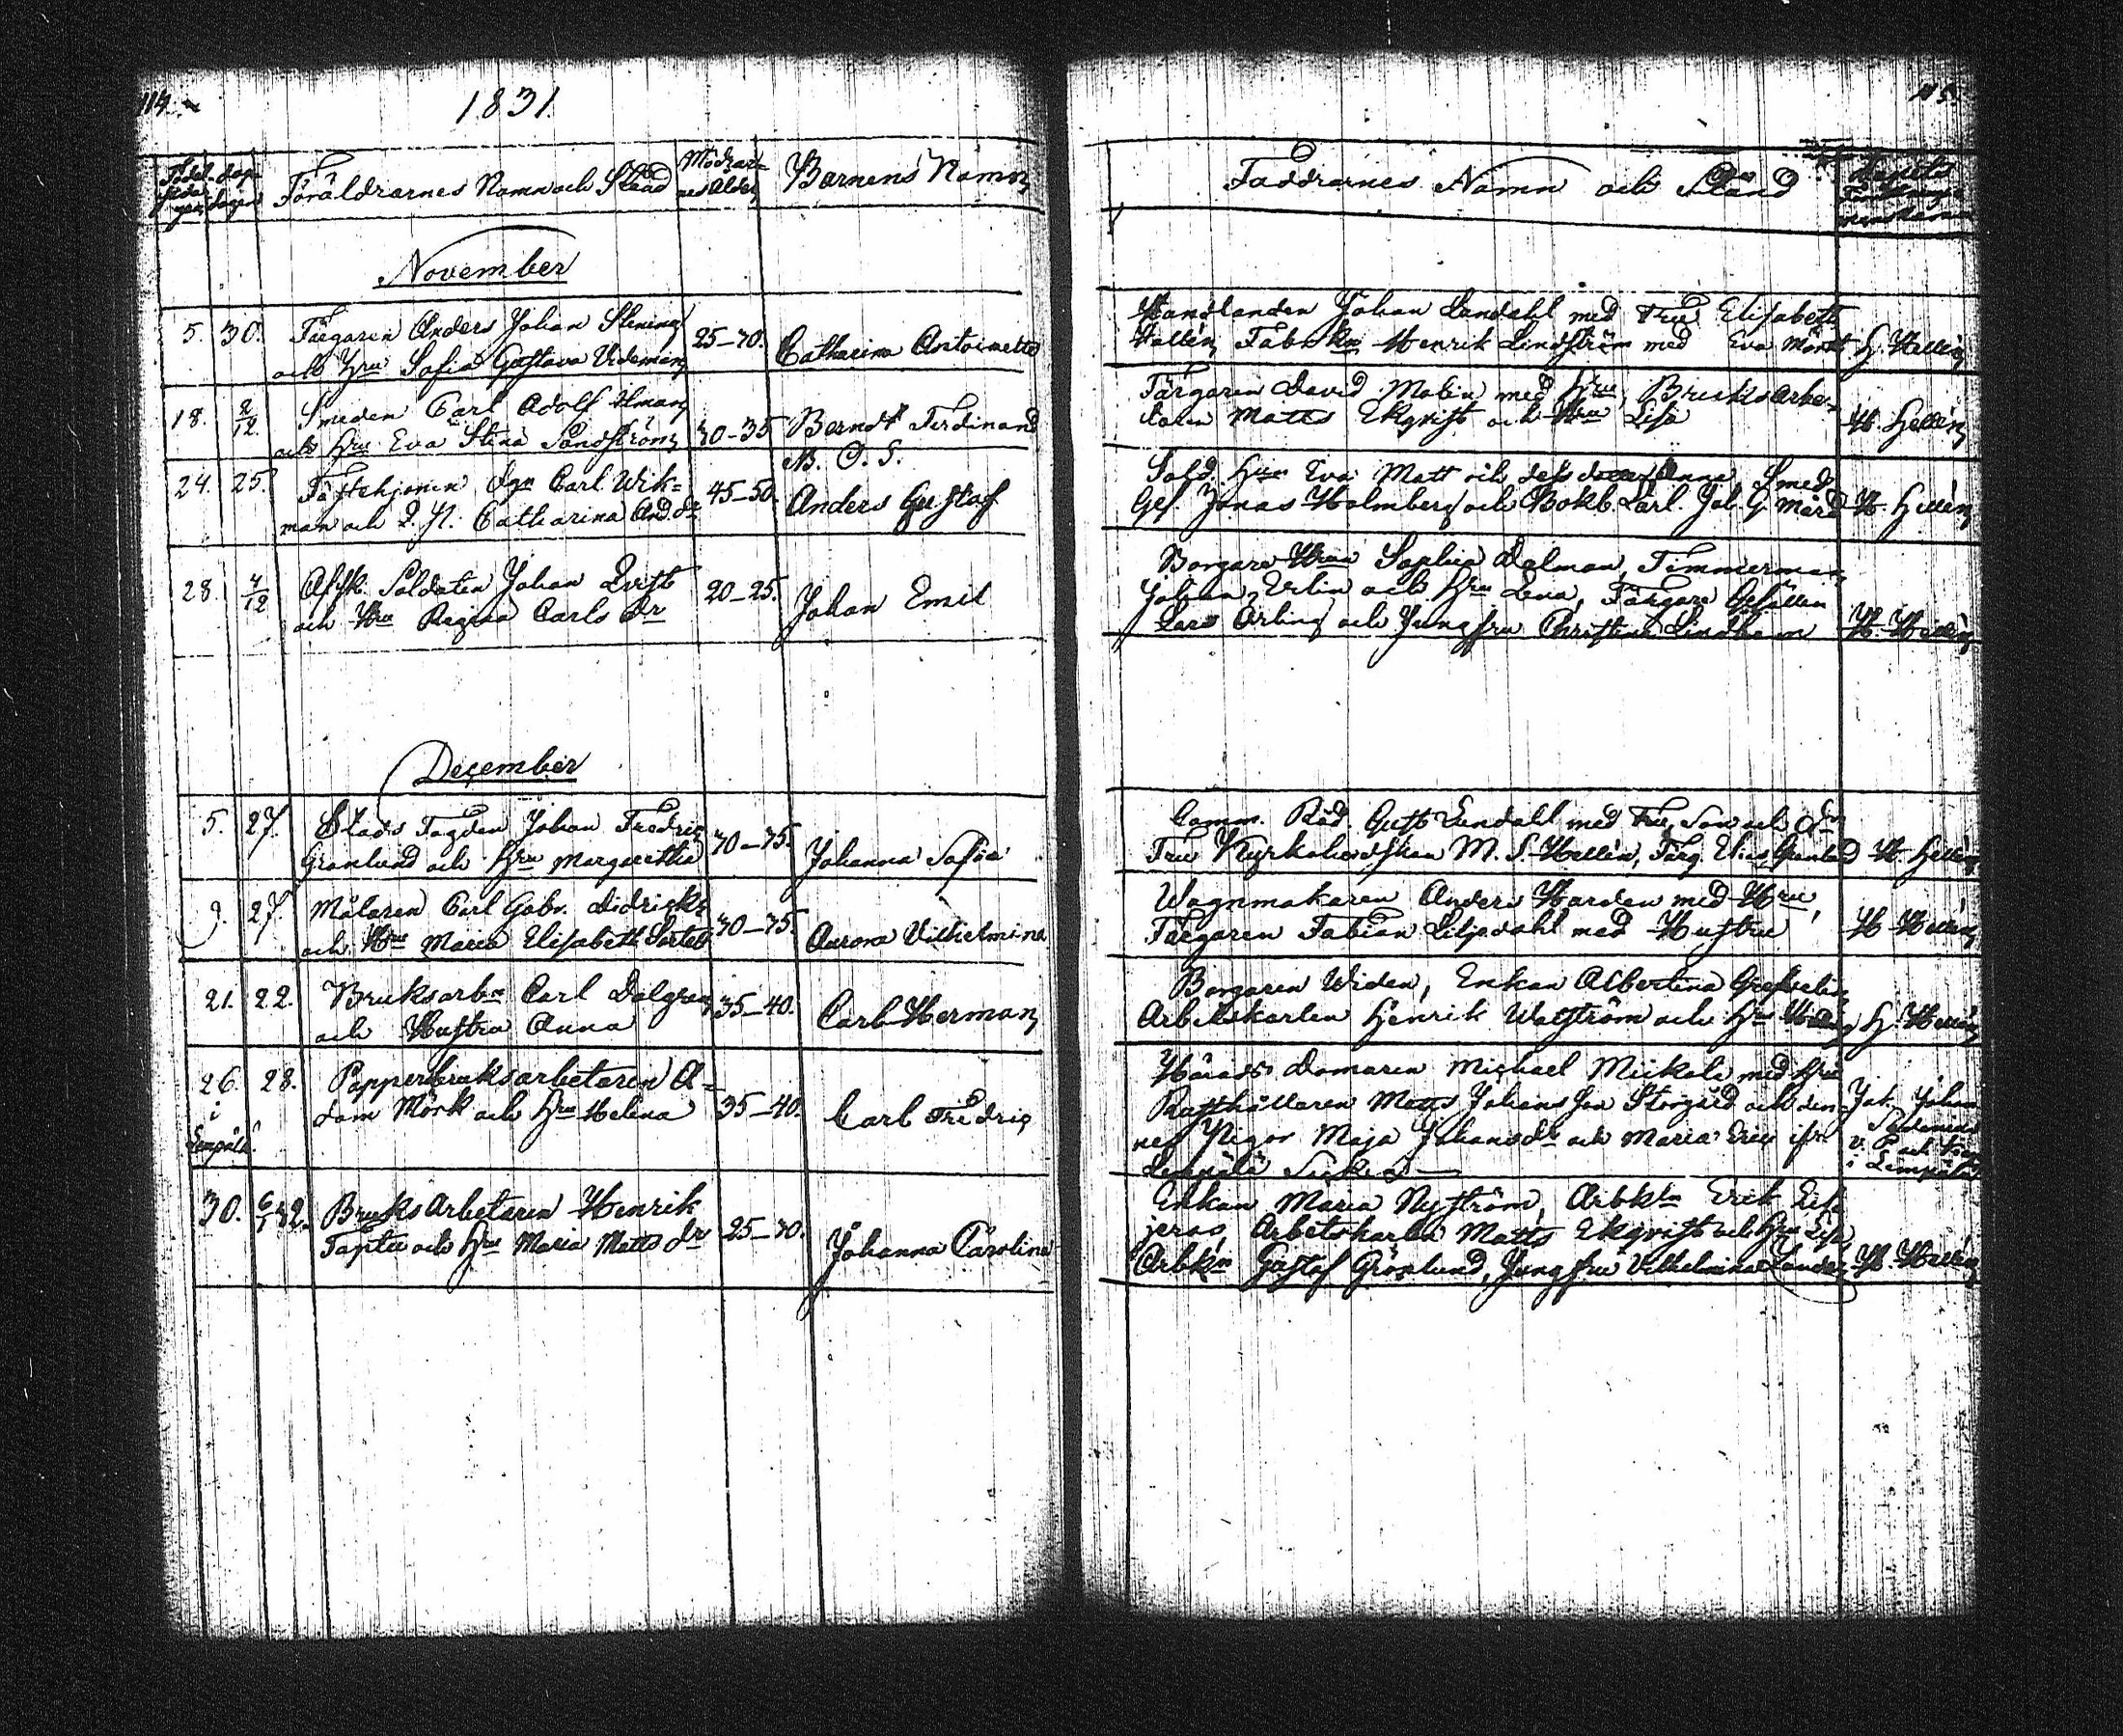 114.
1831.
Födel- Dop-
Föräldrarnes Namn och Stånd
Mödrar-
nes Ålder
Barnens Namn
November
5. 30. Färgaren Anders Johan Stening
och Hru Sofia Gustava Videman
25-30.
Catharina Antoinette
18. 2/12. Smeden Carl Adolf Uman
och Hru Eva Stina Sandström
30-35
Berndt Ferdinand
24. 25. Fästehjonen Dgn Carl Wik=
man och P. N. Catharina And. dr
45-50.
N. O. S.
Anders Gustaf
28. 4/12 Afsk. Soldaten Johan Qvist
och Hru Regina Carls dr
20-25.
Johan Emil
December
5. 27. Stads Fogden Johan Fredric
Granlund och Hru Margaretha
30-35.
Johanna Sofia
9. 27. Målaren Carl Gabr. Didricks
och Hru Maria Elisabeth
30-35.
Aurora Vilhelmina
21. 22. Bruksarbn Carl Dalgren
och Hustru Anna
35-40.
Carl Herman
26. 28. Pappersbruksarbetaren A=
i
dam Mörk och Hru Helena
Lempälä.
35-40.
Carl Fredric
30. 6/1 32. Bruks Arbetaren Henrik
Taptu och Hru Maria Matts dr
25-30.
Johanna Carolina
115.
Faddrarnes Namn och Stånd
Handlanden Johan Sandahl med Fru Elisabeth
Hallén, Fabrikn Henrik Lindström med Eva Mörk
H. Hellén
Färgaren David Malin med Hru, Bruksarbe=
taren Matts Ekqvist och Hru Lisa
H. Hellén
Sold. Hun Eva Matt och dess dotter Anna Smed
Ges. Jonas Holmberg och Bokb. Lärl. Joh. G. Mård
H. Hellén
Borgare Hrun Sophia Dalman, Timmerman
Johan Erlin och Hru Lena, Färgare Gesällen
Lars Arling och Jungfru Christina Lindholm
H. Hellén
Comm. Råd. Gust Lundahl med Fru, Son och
Fru Kyrkoherdskan M. S. Hellén, Färg. Elias Granlund
H. Hellén
Wagnmakaren Anders Harden med Hru,
Färgaren Fabian Liljedahl med Hustru
H. Hellén
Borgaren Widen, Enkan Albertina
Arbetskarlen Henrik Watström och Hru
H. Hellén
Härads Domaren Michael Mickola med Hru
Rusthållaren Matts Johansson Storgård och den-
nes Pigor Maja Johansdr och Maria Eric ifrån
Lempälä Socken
Joh. Johan
v. P. och
i Lempälä
Enkan Maria Nyström, Arbkln Erik
jeros, Arbetskarlen Matts Ekqvist och Hru Lisa,
Arbkn Gustaf Grönlund, Jungfru Vilhelmina
H. Hellén